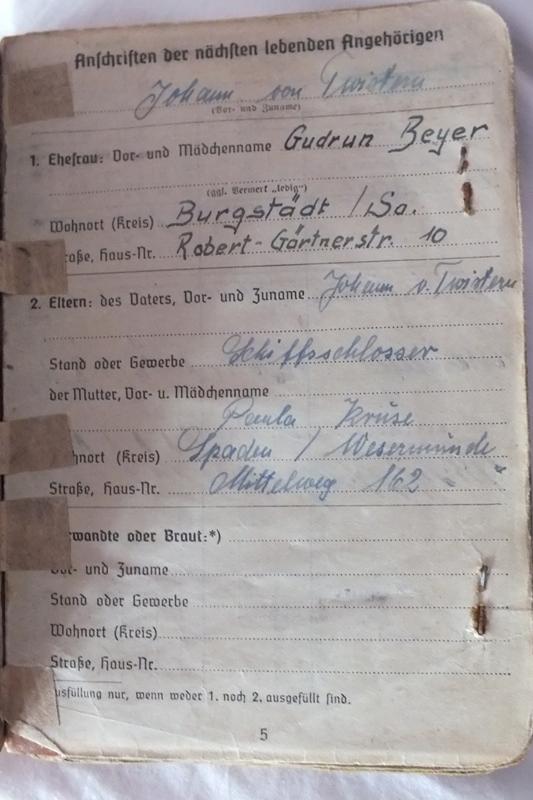 Anschriften der nächsten lebenden Angehörigen
Johann von Twistern
(Vor- und Zuname)
1. Ehefrau: Vor- und Mädchenname Gudrun Beyer
(ggf. Vermerk „ledig")
Wohnort (Kreis) Burgstädt / Sa.
raße, Haus-Nr. Robert-Gärtnerstr. 10
2. Eltern: des Vaters, Vor- und Zuname Johann v. Twistern
Stand oder Gewerbe Schiffsschlosser
der Mutter, Vor- u. Mädchenname
Paula Krüse
hnort (Kreis) Spaden / Wesermünde
Straße, Haus-Nr. Mittelweg 162
rwandte oder Braut:*)
Vor- und Zuname
Stand oder Gewerbe
Wohnort (Kreis)
Straße, Haus-Nr.
usfüllung nur, wenn weder 1. noch 2. ausgefüllt sind.
5